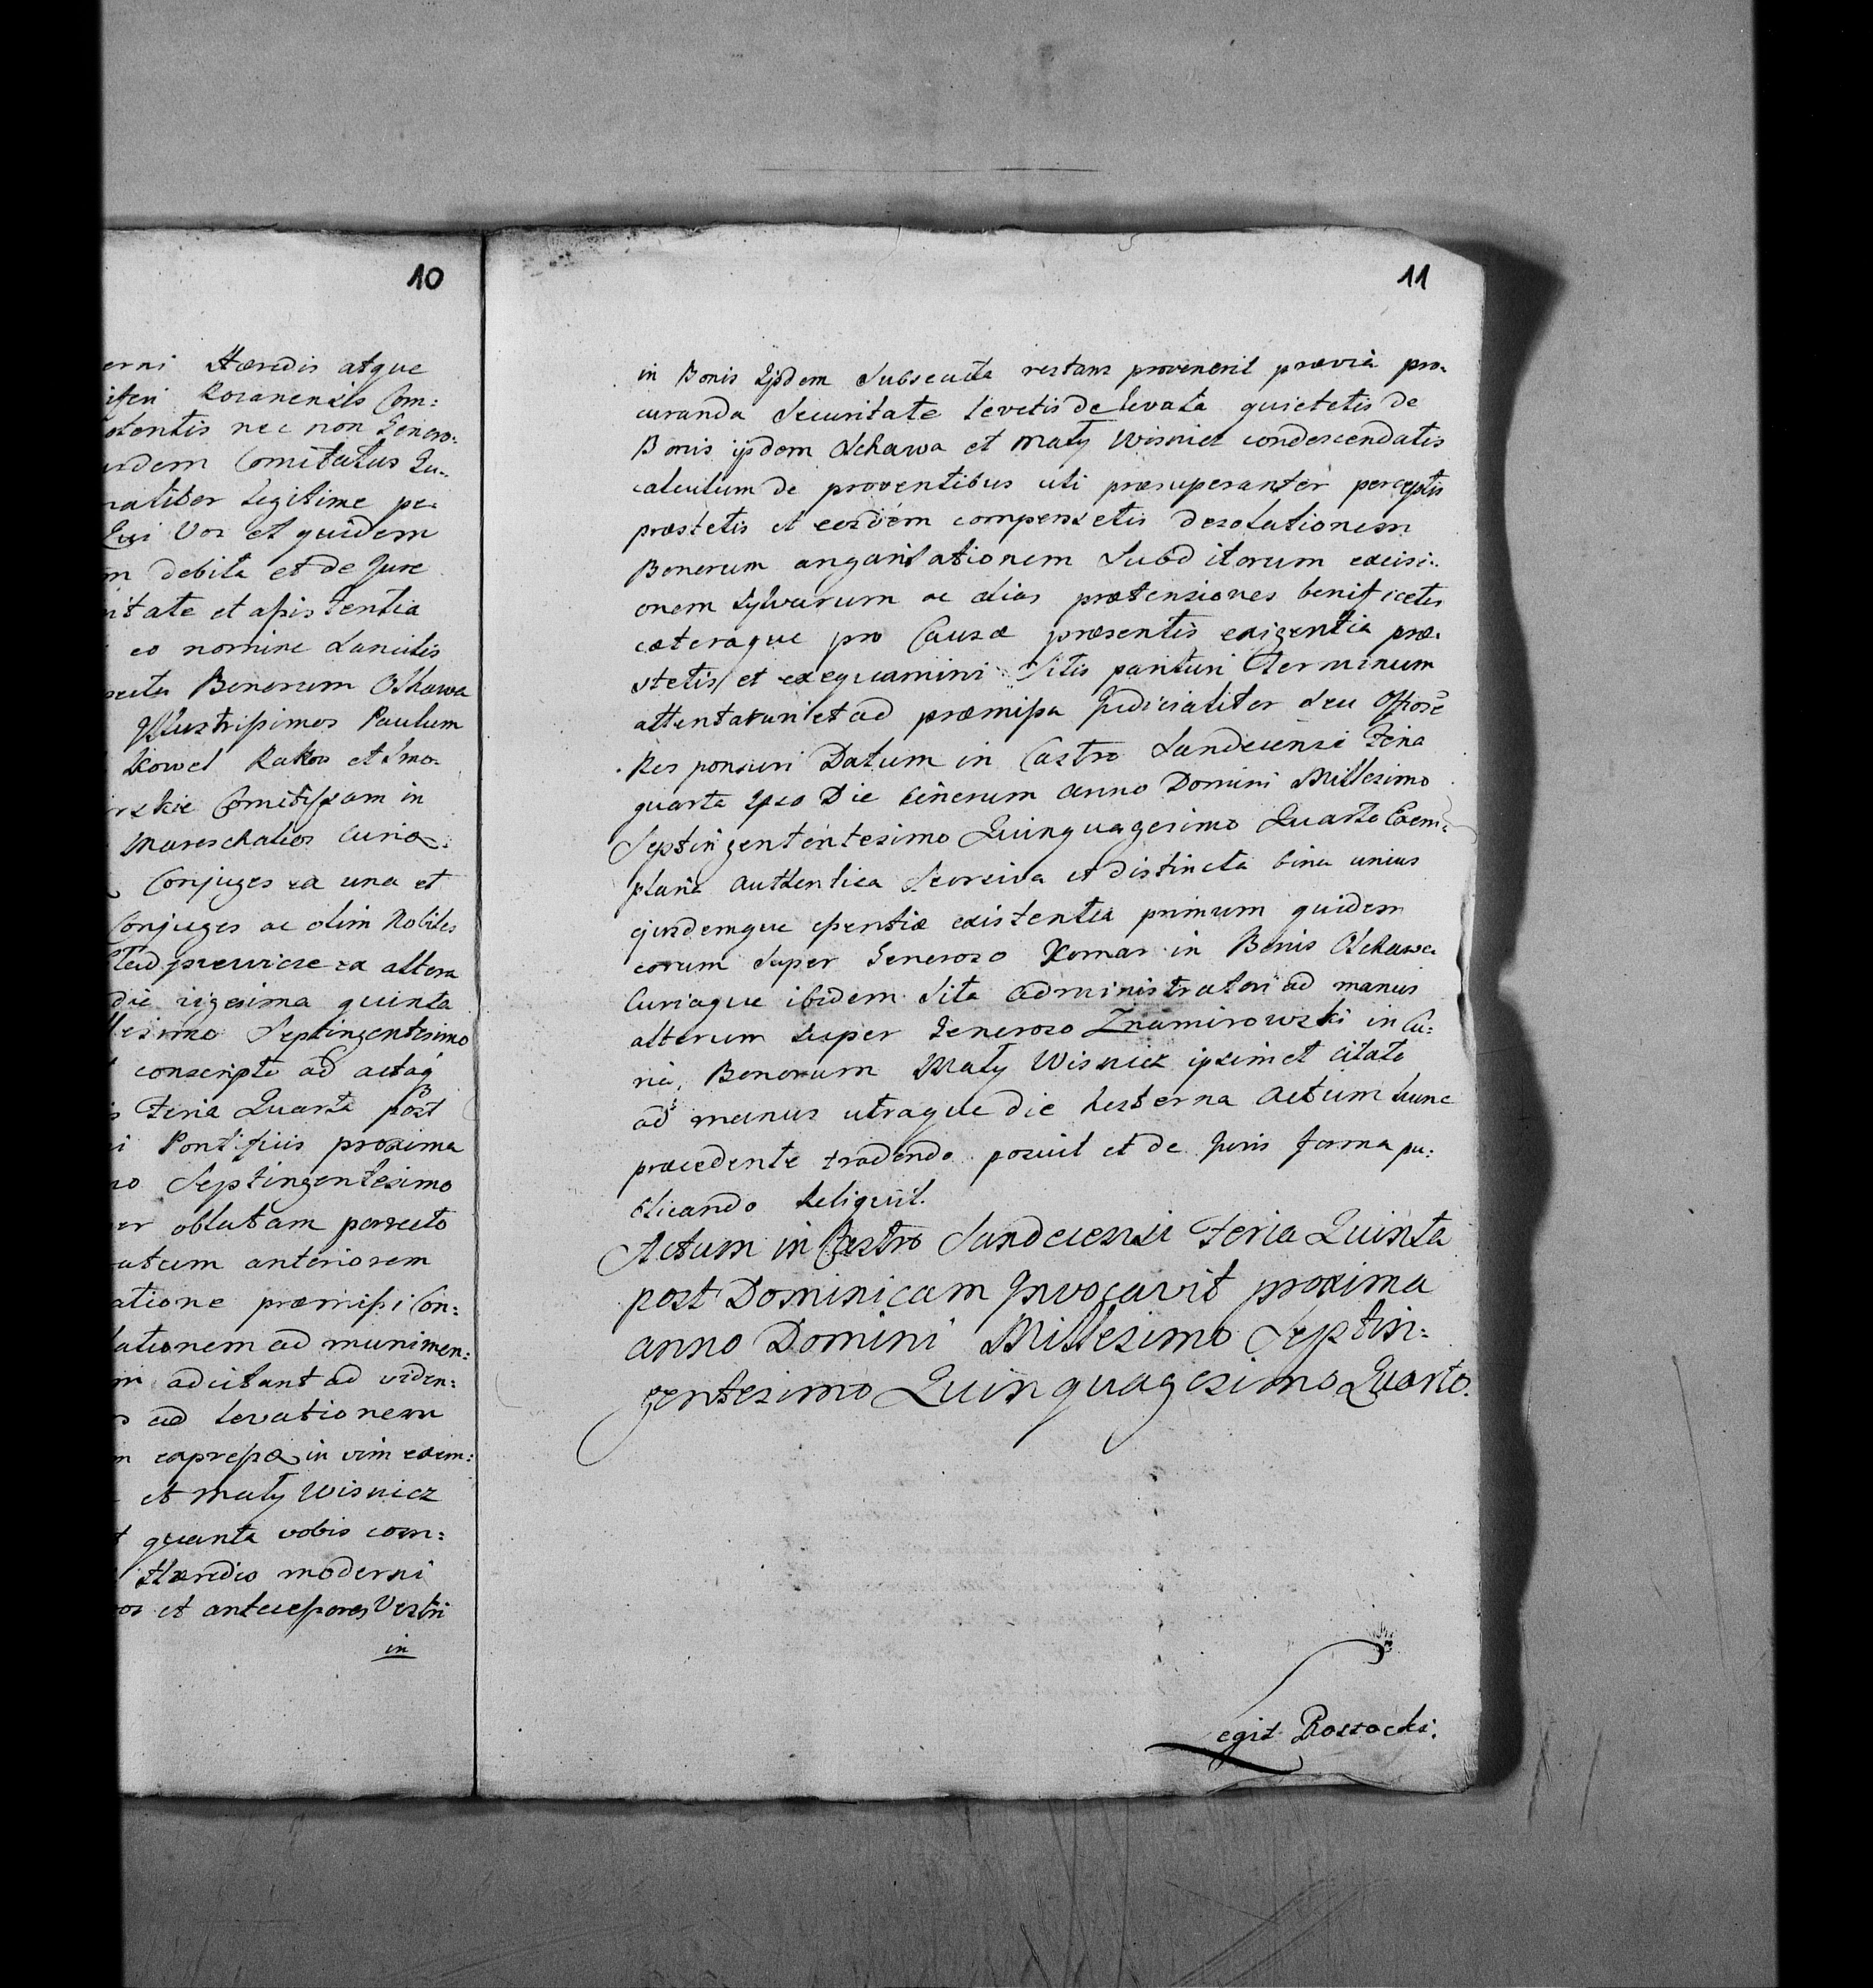 10
erni Hæredis atque
iferi Rozanensis Com:
otentis nec non Genero:
usdem Comitatus Qu:
raliter legitime pe:
Qui Vos et quidem
m debita et de Jure
nitate et assistentia
eo nomine Sancitis
pectu Bonorum Olchawa
Illustrissimos Paulum
Kowel Rakow et Smo:
rskie Comitissam in
Mareschalios Curiæ:
Conjuges ex una et
Conjuges ac olim Nobiles
ex altera
die vigesima quinta
lesimo Septingentesimo
conscripto ad actaq
s Feria Quarta post
ni Pontificis proxima
no Septingentesimo
er oblatam porrecto
atum anteriorem
atione præmissi Con:
lationem ad munimen:
m adcitant ad viden:
s ad levationem
m expressæ in vim exem:
et Mały Wisnicz
t quanta vobis com:
Hæredis moderni
vos et antecessores Vestri
in
11
in Bonis Ijsdem Subsecuta restans provenerit prævia pro:
curanda Securitate levetis de levata quietetis de
Bonis ijsdem Olchawa et Mały Wisnicz condescendatis
calculum de proventibus uti præsuperanter perceptis
præstetis et eosdem compensetis desolationem
Bonorum angarisationem Subditorum excisi:
onem Sylvarum ac alias prætensiones bonificetis
cæteraque pro Causæ præsentis exigentia præ:
stetis et exequamini Sitis parituri Terminum
attentaturi et ad præmissa Judicialiter seu Offose
Responsuri Datum in Castro Sandecensi Feria
quarta Ipso Die Cinerum anno Domini Millesimo
Septingententesimo Quinquagesimo Quarto Exem:
plaria Authentica Seorsiva et distincta bina unius
ejusdemque essentiæ existentia primum quidem
eorum Super Generoso Komar in Bonis Olchawa
Curiaque ibidem Sita administratori ad manus
alterum super Generoso Znamirowski in Cu:
ria Bonorum Mały Wisnicz ipsimet citato
ad manus utraque die hesterna Actum hunc
præcedente tradendo posuit et de Juris forma pu:
blicando Reliquit.
Actum in Castro Sandecensi Feria Quinta
post Dominicam Invocavit proxima
anno Domini Millesimo Septin:
gentesimo Quinquagesimo Quarto.